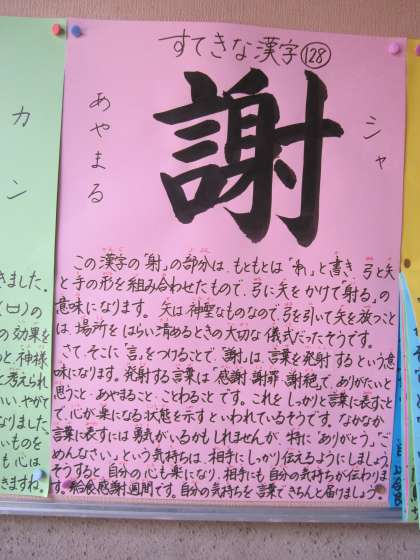 すてきな漢字 128
あやまる
謝
シャ
この漢字の「射」の部分は、もともとは「」と書き、弓と矢
と手の形を組み合わせたもので、弓に矢をかけて「射る」の
意味になります。矢は神聖なものなので、弓を引いて矢を放つこと
は、場所をはらい清めるときの大切な儀式だったそうです。
さて、そこに「言」をつけることで、「謝」は、言葉を発射するという意
味になります。発射する言葉は「感謝・謝罪・謝絶」で、ありがたいと
思うこと・あやまること・ことわることです。これをしっかりと言葉に表すこと
で、心が楽になる状態を示すといわれているそうです。なかなか
言葉に表すには勇気がいるかもしれませんが、特に「ありがとう」「ご
めんなさい」という気持ちは、相手にしっかり伝えるようにしましょう。
そうすると、自分の心も楽になり、相手にも自分の気持ちが伝わりま
す。給食感謝週間です。自分の気持ちを言葉できちんと届けましょう。
カン
きました。
(口)の
の効果を
と神様
と考えられ
いいやがて
なりました。
いものを
も心は
きますね。